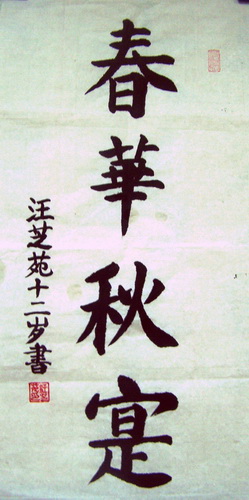 春華秋寔
汪芝苑十二岁書